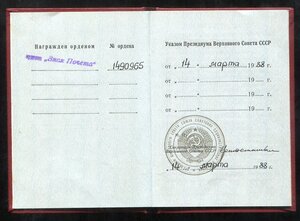 Награжден орденом № ордена
орденом „Знак Почета" 1490965
Указом Президиума Верховного Совета СССР
от „ 14 " марта 1988 г.
от „ " 19 г.
от „ " 19 г.
от „ " 19 г.
„ 14 " марта 1988 г.